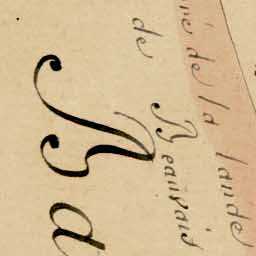 de la lande
de Beauvais
Ba